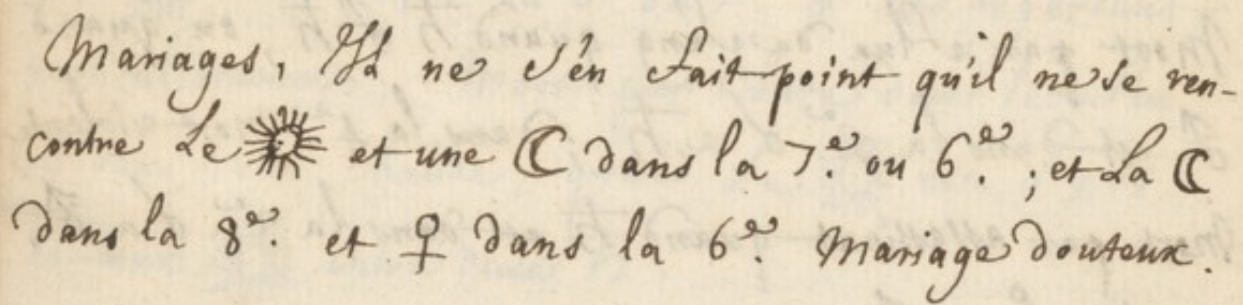 Mariages, Il ne s'en fait point qu'il ne se ren-
contre Le ☀ et une ☾ dans la 7.e ou 6.e ; et La ☾
dans la 8.e et ♀ dans la 6.e Mariage douteux.